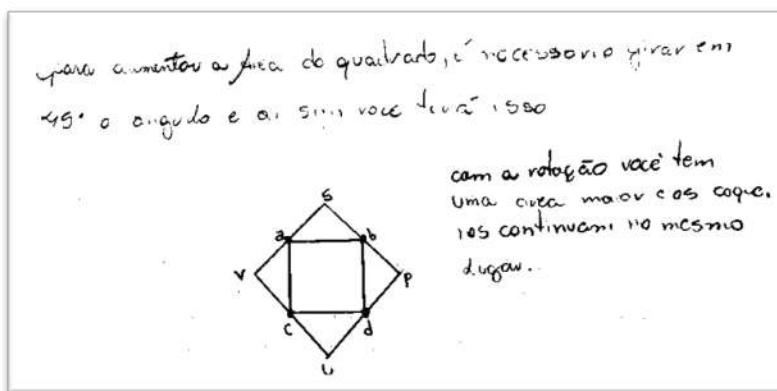 para aumentar a área do quadrado, é necessario girar em
45° o angulo e ai sim você terá isso
com a rotação você tem
uma area maior e os coquei
ros continuam no mesmo
lugar.
s
a b
v p
c d
u